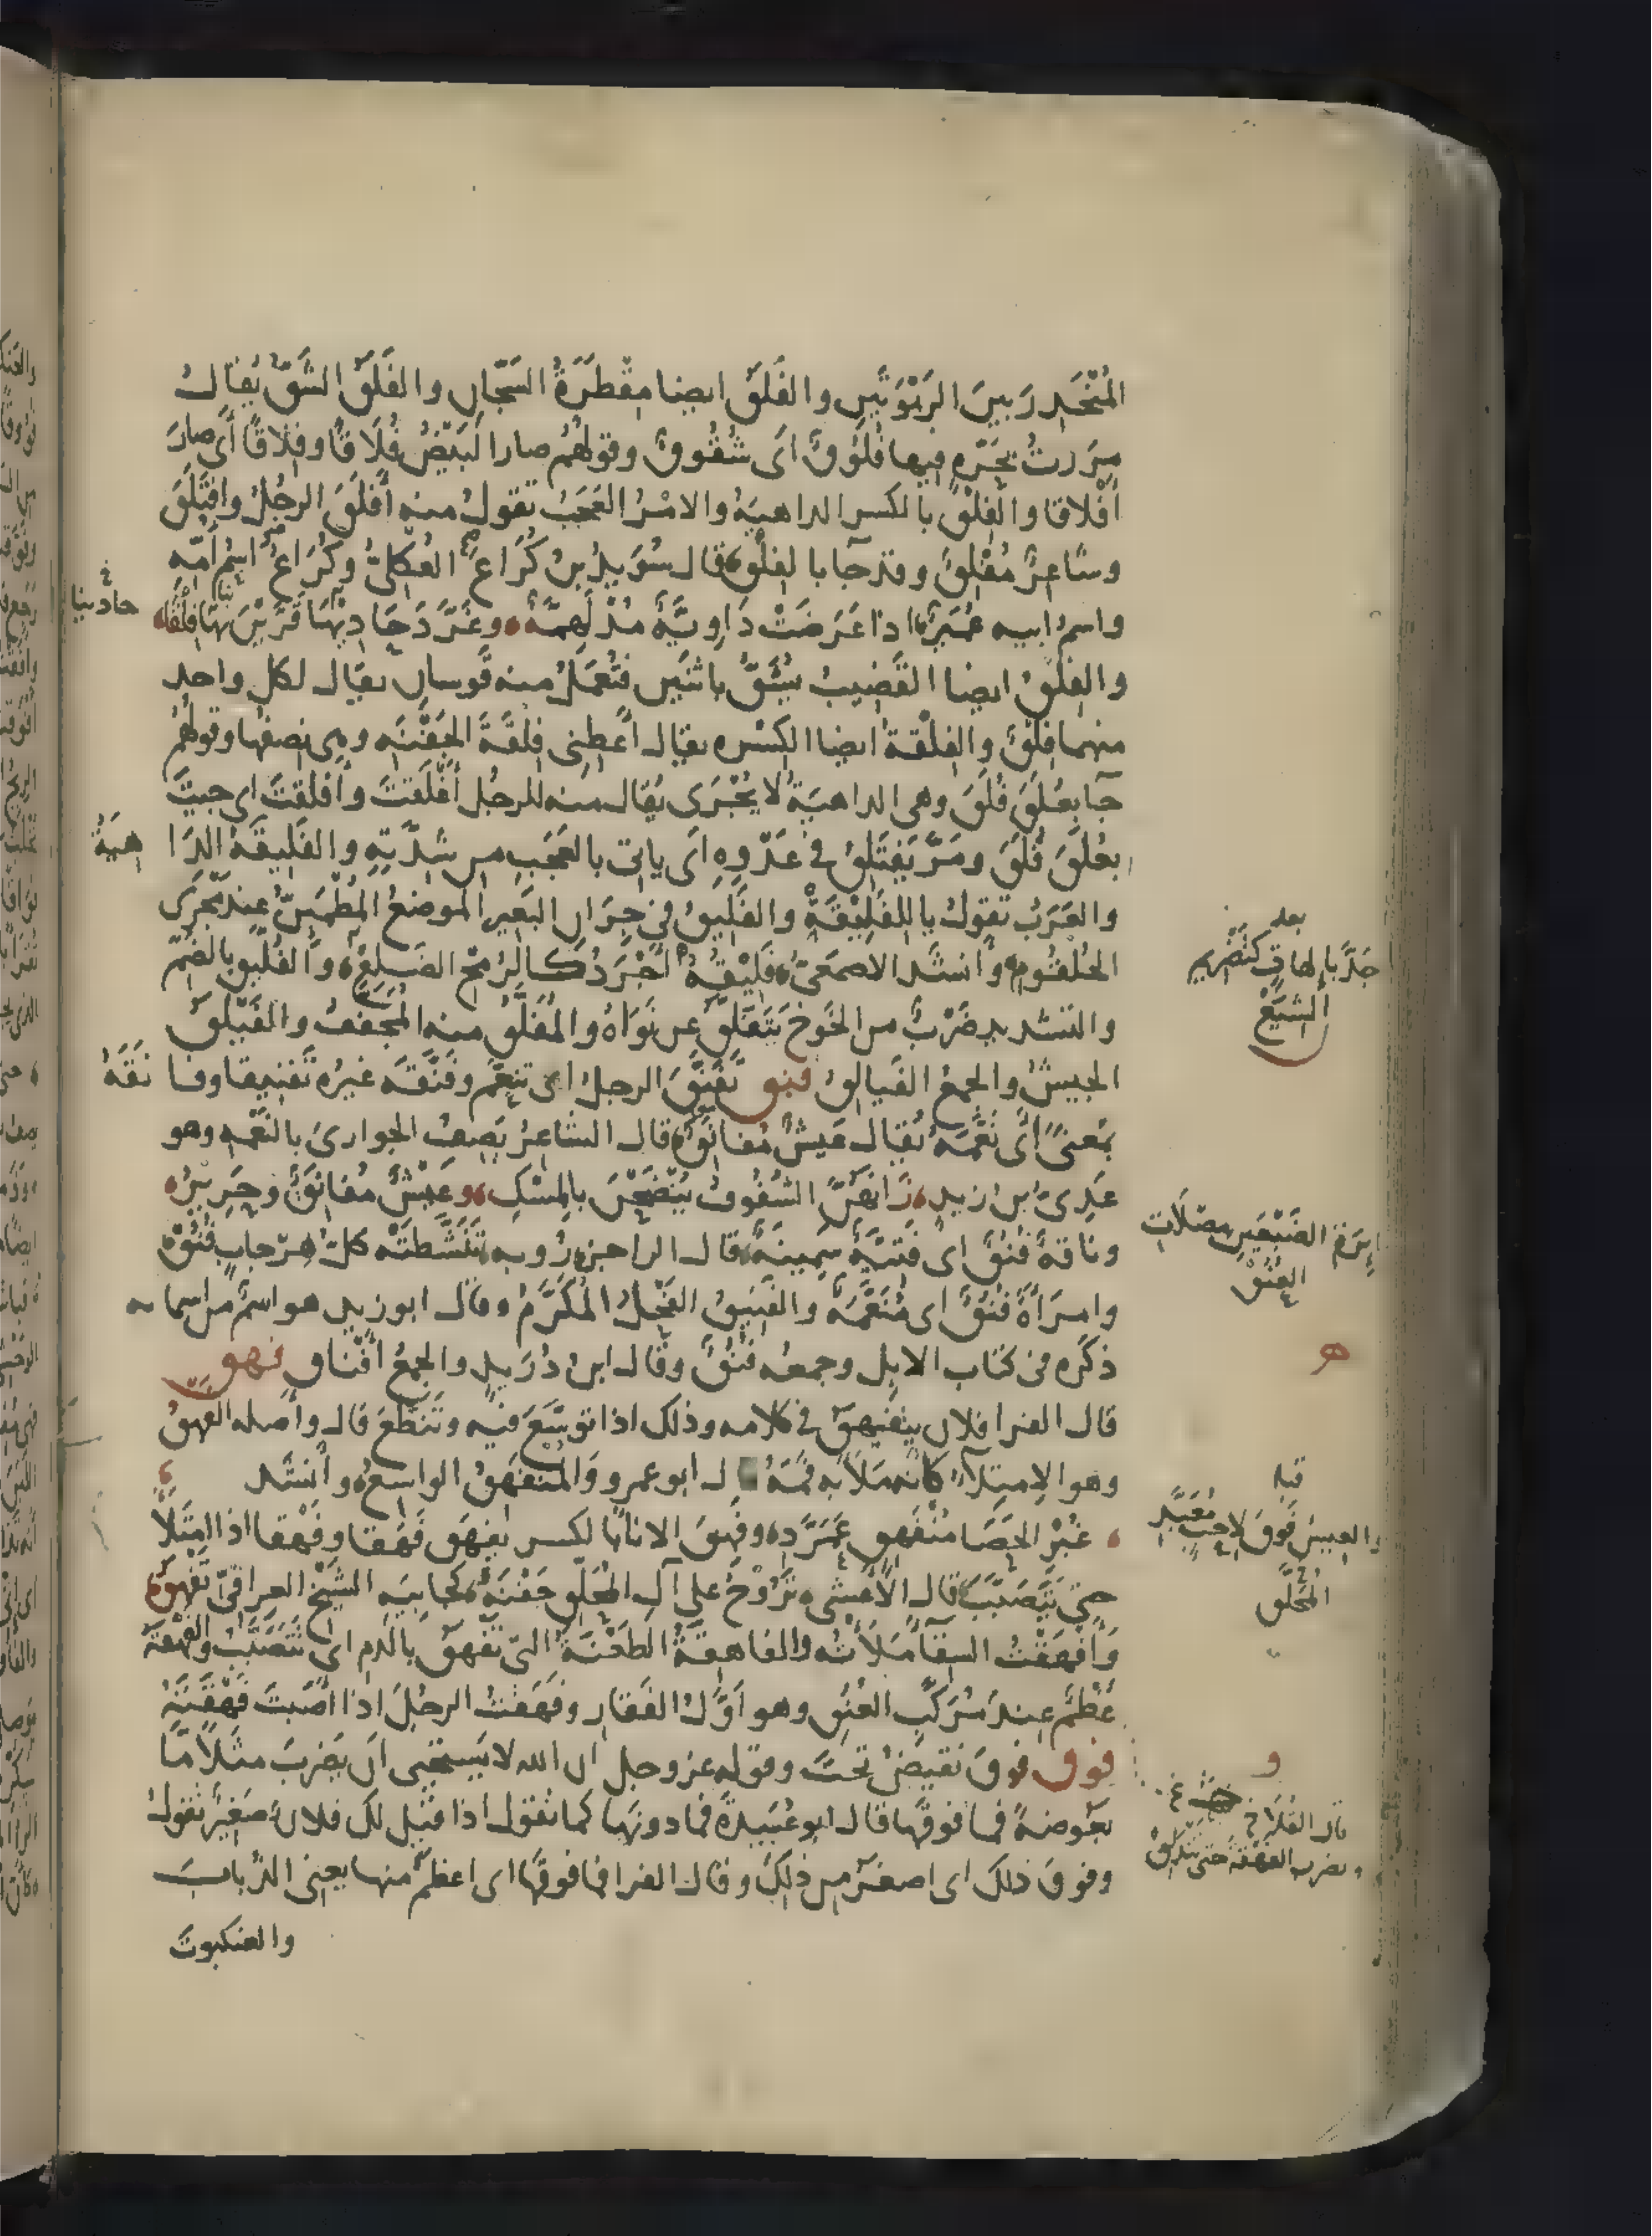 المُنْحَدِر بين الرَبْوَتَيْنِ والفَلَقُ ايضا مِقْطَرَةُ السَجّان والفَلْقُ الشَقُّ يُقال
مررتُ بحَرّةٍ فيها فُلُوْقٌ أى شُقُوقٌ وقولهُم صار البَيْضُ فُلَاقًا وفِلاقًا أى صار
أفْلاقا والفِلْقُ بالكسر الداهيَةُ والامْرُ العَجَبُ تقولُ منه أفْلَقَ الرجُلُ وافْتَلَقَ
وشاعِرٌ مُفْلِقٌ وقد جآ بالفِلْقِ قال سُوَيدُ بنُ كُرَاعَ العُكْلِىُّ وكُرَاعُ اسْمُ أمّه
واسمُ ابيه عُمَيرٌ اذا عَرَضَتْ دَاوِيَّةٌ مُدْلَهِمَّةٌ وغَرَّدَ حَادِيْهَا فَرَيْنَ بهَا فِلْقَا
حادينا
والفِلْقُ ايضا القَضِيبُ يُشَقُّ باثنَين فتُعْمَلُ منه قوسان يقال لكل واحد
منهما فِلْقٌ والفِلْقَةُ ايضا الكِسْره يقال أعْطِنى فِلْقَةَ الجَفْنَه وهى نصفها وقولهُم
جآ بعُلَقَ فُلَقَ وهى الداهيَةُ لا يُجْرَى يُقال منه للرجُل أعْلَقتَ وأفْلَقتَ اى جيتَ
بعُلَقَ فُلَقَ ومَرَّ يَفتَلِقُ فى عَدْوِهِ أى ياتى بالعَجَبِ من شِدَّتِهِ والفَلِيقَةُ الدَاهِيَةُ
والعَرَبُ تقولُ يا لِلفَلِيْقَةِ والفَلِيقُ فى جِرَانِ البَعِير الموضعُ المُطْمَئِنُّ عند مَجْرَى
الحُلْقُومِ وانشد الاصمَعىُّ فَلِيْقُهُ أجْرَدُ كالرُمْحِ الضَلِعْ والفُلّيقُ بالضَمّ
بعد
جَدَّ بإلهابٍ كتَضْريم
الشِيَعْ
والتشديد ضَرْبٌ من الخَوخ يَتَفلَّقُ عن نَوَاهُ والمُفَلَّقُ منه المُجَفَّفُ والفَيْلَقُ
الجيشُ والجمعُ الفَيالِقُ فنق تَفَنَّقَ الرجلُ اى تنعَّمَ وفَنَّقَه غيرُه تَفنيقا وفانَقَهُ
بمَعنىً أى نَعَّمَهُ يُقال عَيشٌ مُفانِقٌ قال الشاعرُ يَصِفُ الجوارىَ بالنَعْمه وهو
عَدِىُّ بنُ زيد زَانَهُنَّ الشُفُوفُ يَنْضَحْنَ بالمِسْكِ وعَيْشٌ مُفانِقٌ وحَرِيرُ
وناقةٌ فُنُقٌ اى فَتِيَّةٌ سَمِينَةٌ قال الراجز رُوبه تَنَشَّطَتْه كلُّ هِرْجابٍ فُنُقْ
مضْبُورةٍ
العُنُقْ
وامرَأةٌ فُنُقٌ اى مُنَعَّمَةٌ والفَنِيقُ الفَحْلُ المُكَرَّمُ وقال ابو زيد هو اسمٌ من اسمايه
ذكَره فى كتاب الابِل وجمعه فُنُقٌ وقال ابن دُرَيد والجمعُ أفْناق فهق
قال الفرا فلان يتفَيْهَقُ فى كلامه وذلك اذا توَسَّعَ فيه وتَنَطَّعَ قال وأصله الفهقُ
وهو الإمتِلآء كانّه مَلأَ به فمَهُ قال ابو عمرو والمُنفَهِقُ الواسعُ وأنشد
قبله
والعِيسُ فَوقَ لاحِبٍ مُعَبَّدِ
غُبْرِ الحَصَا مُنْفَهِقٍ عَمَرَّدِ وفَهِقَ الانآ بالكسر يَفهَق فَهَقا وفَهْقا اذا امتَلأَ
حتى يَتَصَبَّبَ قال الأعشى تَرُوْحُ على آل المُحَلَّقِ جَفْنَةٌ كجابيَه الشَيْخِ العِراقىّ تَفْهَقُ
المُحَلَّقِ
وأفْهَقْتُ السِقآ مَلأتُه والفاهِقَةُ الطَعْنَةُ التى تَفْهَقُ بالدم اى تتَصَبَّبُ والفهْقَةُ
عَظْمٌ عند مُرَكَّبِ العُنُق وهو أوَّلُ الفَقارِ وفَهَقتُ الرجُلَ اذا أصَبتَ فَهْقَتَهُ
و
فوق فوقَ نقيضُ تحتَ وقوله عز وجل ان الله لا يَستحيى أن يَضرِبَ مثَلاً مّا
بعَوضةً فما فوقَها قال ابو عُبَيدَةَ فما دونَها كما تقول اذا قيل لك فلانٌ صَغيرٌ تقولُ
قال القُلَاخ
وتضرب الفهْقةُ حتى تَنْدَلِقْ
وفوقَ ذلك اى اصغَرُ من ذلك وقال الفرا فما فوقَها اى اعظَم منها يعنى الذُبابَ
والعنكبوتَ